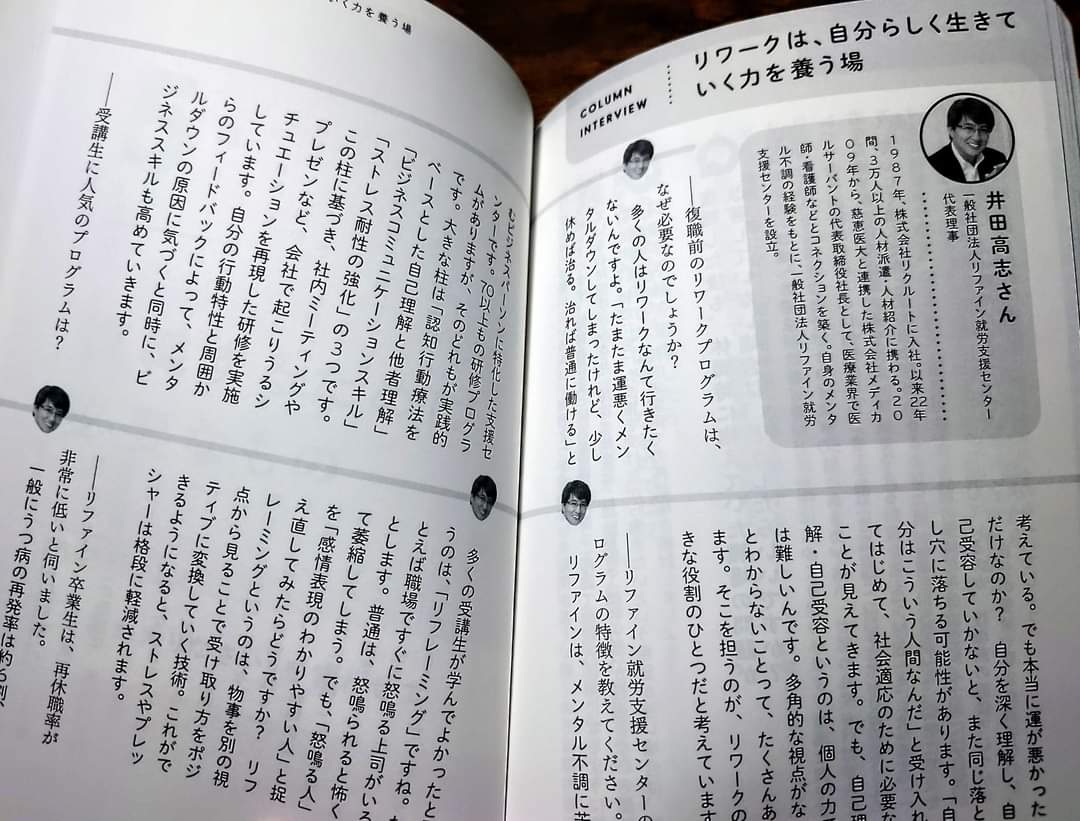 リワークは、自分らしく生きて
いく力を養う場
COLUMN
INTERVIEW
井田高志さん
一般社団法人リファイン就労支援センター
代表理事
1987年、株式会社リクルートに入社。以来22年
間、3万人以上の人材派遣・人材紹介に携わる。20
09年から、慈恵医大と連携した株式会社メディカ
ルサーバントの代表取締役社長として、医療業界で医
師・看護師などとコネクションを築く。自身のメンタ
ル不調の経験をもとに、一般社団法人リファイン就労
支援センターを設立。
──復職前のリワークプログラムは、
なぜ必要なのでしょうか?
多くの人はリワークなんて行きたく
ないんですよ。「たまたま運悪くメン
タルダウンしてしまったけれど、少し
休めば治る。治れば普通に働ける」と
考えている。でも本当に運が悪かった
だけなのか? 自分を深く理解し、自
己受容していかないと、また同じ落と
し穴に落ちる可能性があります。「自
分はこういう人間なんだ」と受け入れ
てはじめて、社会適応のために必要な
ことが見えてきます。でも、自己理
解・自己受容というのは、個人の力で
は難しいんです。多角的な視点がな
とわからないことって、たくさんあ
ます。そこを担うのが、リワークの
きな役割のひとつだと考えています
──リファイン就労支援センターの
ログラムの特徴を教えてください。
リファインは、メンタル不調に苦
いく力を養う場
むビジネスパーソンに特化した支援セ
ンターです。70以上もの研修プログラ
ムがありますが、そのどれもが実践的
です。大きな柱は「認知行動療法を
ベースとした自己理解と他者理解」
「ビジネスコミュニケーションスキル」
「ストレス耐性の強化」の3つです。
この柱に基づき、社内ミーティングや
プレゼンなど、会社で起こりうるシ
チュエーションを再現した研修を実施
しています。自分の行動特性と周囲か
らのフィードバックによって、メンタ
ルダウンの原因に気づくと同時に、ビ
ジネススキルも高めていきます。
──受講生に人気のプログラムは?
多くの受講生が学んでよかったと
うのは、「リフレーミング」ですね。
とえば職場ですぐに怒鳴る上司がいる
とします。普通は、怒鳴られると怖く
て萎縮してしまう。でも、「怒鳴る人」
を「感情表現のわかりやすい人」と捉
え直してみたらどうですか? リフ
レーミングというのは、物事を別の視
点から見ることで受け取り方をポジ
ティブに変換していく技術。これがで
きるようになると、ストレスやプレッ
シャーは格段に軽減されます。
──リファイン卒業生は、再休職率が
非常に低いと伺いました。
一般にうつ病の再発率は約6割、